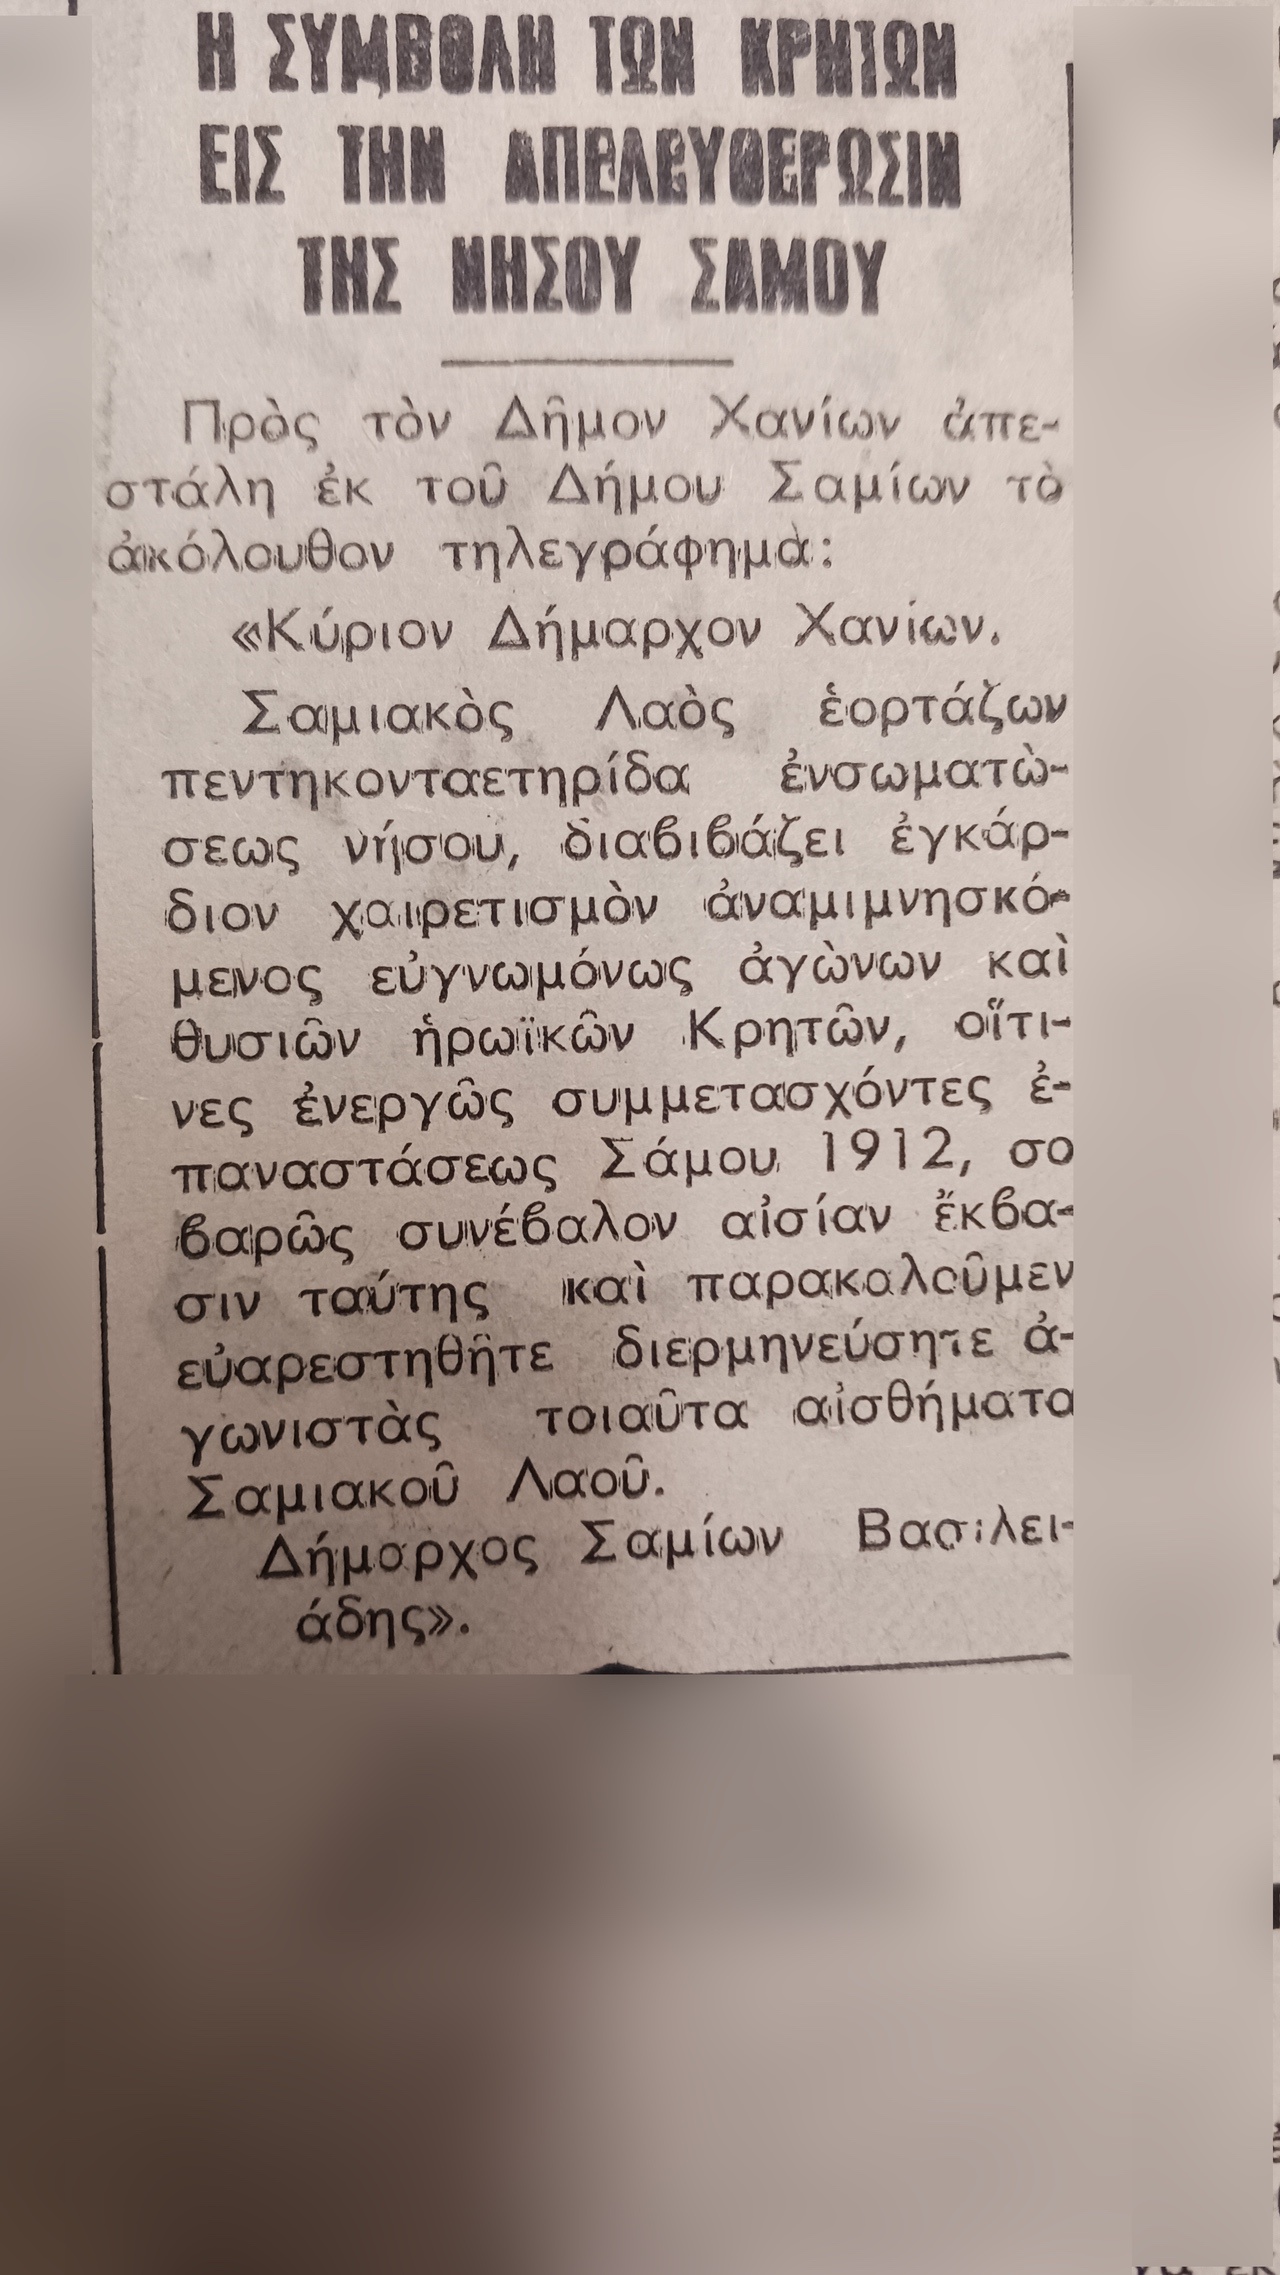 Η ΣΥΜΒΟΛΗ ΤΩΝ ΚΡΗΤΩΝ
ΕΙΣ ΤΗΝ ΑΠΕΛΕΥΘΕΡΩΣΙΝ
ΤΗΣ ΝΗΣΟΥ ΣΑΜΟΥ
Πρὸς τὸν Δῆμον Χανίων ἀπε-
στάλη ἐκ τοῦ Δήμου Σαμίων τὸ
ἀκόλουθον τηλεγράφημα:
«Κύριον Δήμαρχον Χανίων.
Σαμιακὸς Λαὸς ἑορτάζων
πεντηκονταετηρίδα ἐνσωματὼ-
σεως νήσου, διαβιβάζει ἐγκάρ-
διον χαιρετισμὸν ἀναμιμνησκό-
μενος εὐγνωμόνως ἀγὼνων καὶ
θυσιῶν ἡρωϊκῶν Κρητῶν, οἵτι-
νες ἐνεργῶς συμμετασχόντες ἐ-
παναστάσεως Σάμου 1912, σο
βαρῶς συνέβαλον αἰσίαν ἔκβα-
σιν ταύτης καὶ παρακαλοῦμεν
εὐαρεστηθῆτε διερμηνεύσητε ἀ-
γωνιστὰς τοιαῦτα αἰσθήματα
Σαμιακοῦ Λαοῦ.
Δήμαρχος Σαμίων Βασιλει-
άδης».